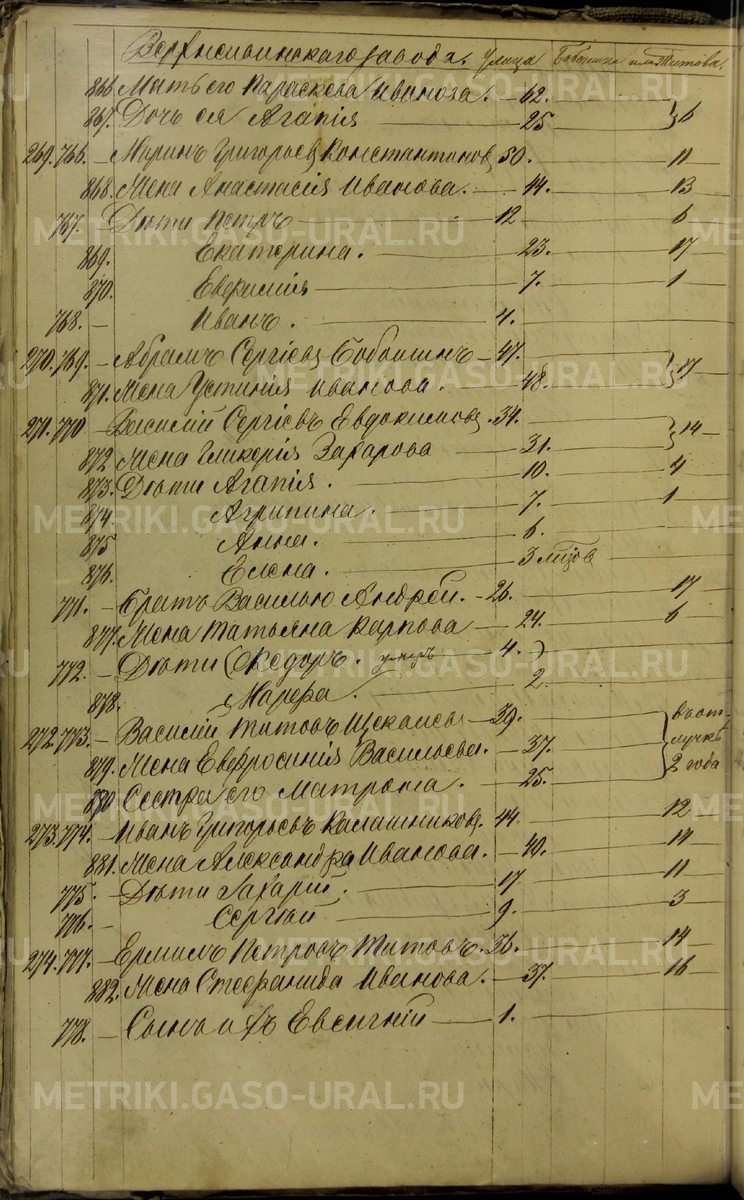 Верхнейвинскаго завода. Улица Бабошина или Титова.
866. Мать его Параскева Иванова. — 62.
867. Дочь ея Агапія — 25 } 6
269. 766. — Маринъ Григорьевъ Константиновъ 50. — 11
868. Жена Анастасія Иванова. — 44. — 13
767. Дѣти Петръ — 12 — 6
869. Екатерина. — 23. — 17
870. Евфимія — 7. — 1
768. — Иванъ. — 4.
270. 769. — Абрамъ Сергіевъ Бабошинъ — 47.
871. Жена Устинія Иванова. — 48. } 17
271. 770 — Василій Сергіевъ Евдокимовъ. 34.
872 Жена Гликерія Захарова — 31. } 14
873. Дѣти Агапія. — 10. — 4
874. Агрипина. — 7. — 1
875 Анна. — 6.
876. Елена. — 3
771. — Братъ Василью Андрей. — 26. — 17
877. Жена Татьяна Карпова — 24. — 6
772. — Дѣти Ѳедоръ. умеръ — 4. }
878. Марфа. — 2.
272. 773. — Василій Титовъ — 39. въ от
879. Жена Евфросинія Васильева. — 37. } лучкѣ
880. Сестра его Матрона. — 25. 2 года
273. 774. — Иванъ Григорьевъ Калашниковъ. 44 — 12
881. Жена Александра Иванова. — 40. — 14
775. — Дѣти Захарій. — 17 — 11
776. — Сергѣй — 9. — 3
274. 777. — Ермилъ Петровъ Титовъ. 36. — 14
882. Жена Стефанида Иванова. — 37. — 16
778. — Сынъ ихъ Евсигній — 1.
METRIKI.GASO-URAL.RU